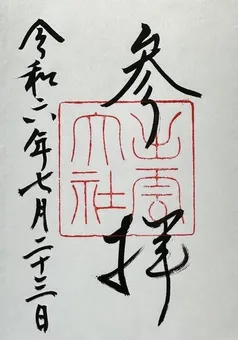 参拝
出雲大社
令和六年七月二十三日